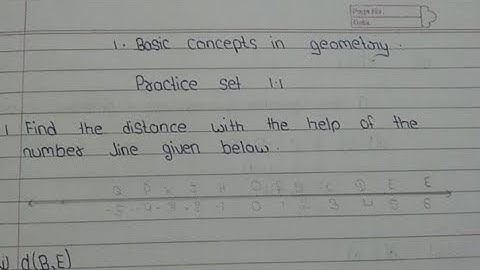 Page No.
Date
1. Basic concepts in geometry.
Practice set 1.1
1 Find the distance with the help of the
number line given below.
-5 -4 -3 -2 -1 0 1 2 3 4 5 6
i) d(B,E)